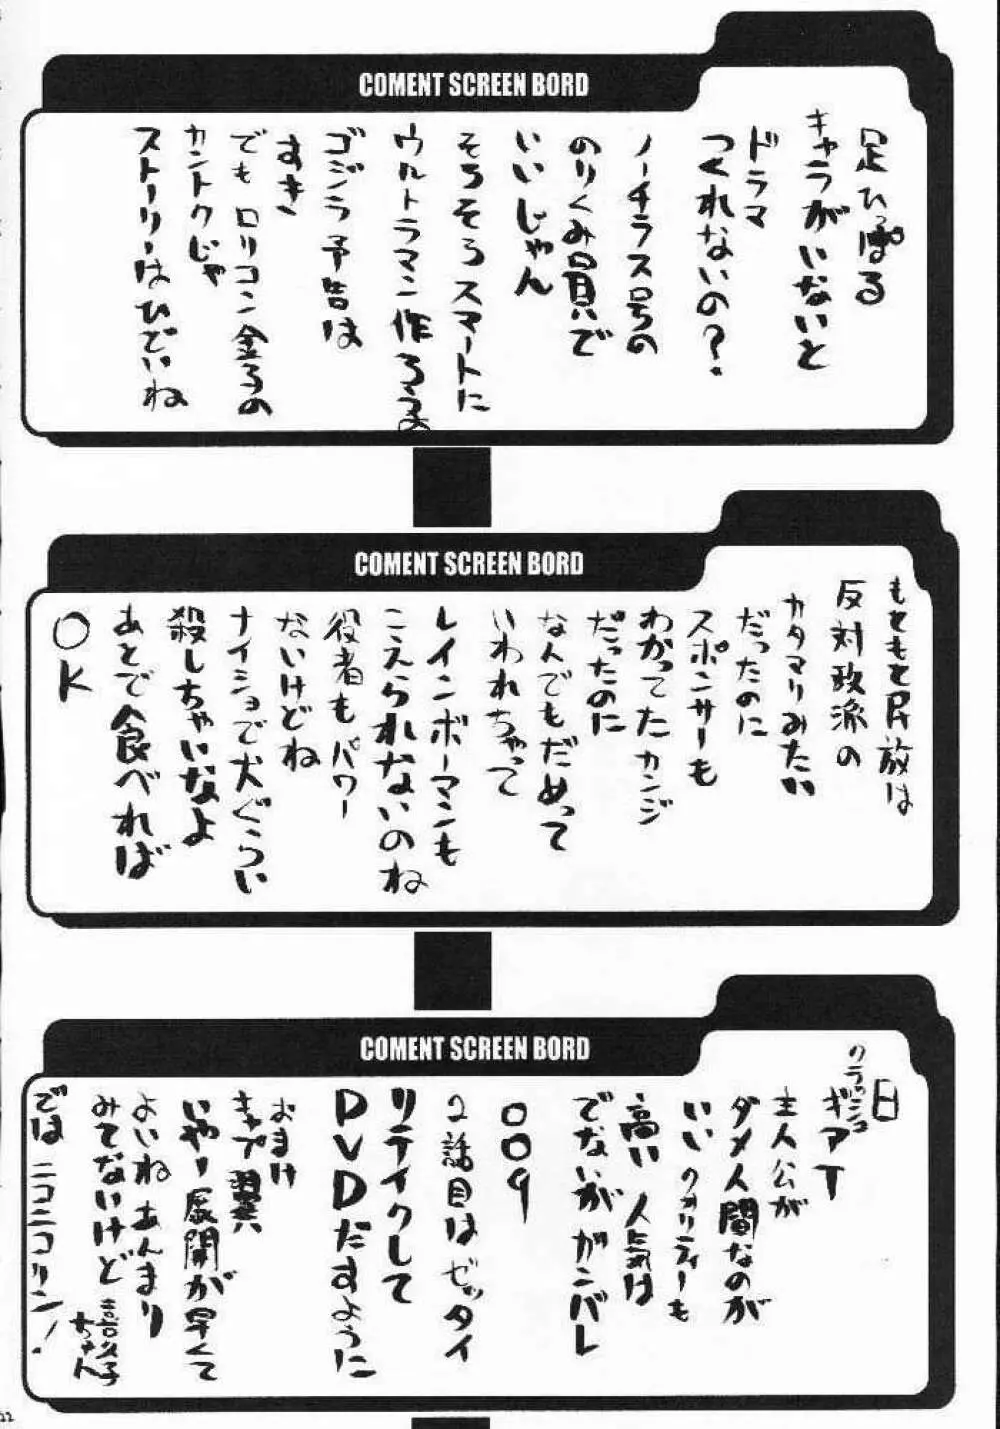 COMENT SCREEN BORD
足ひっぱる
キャラがいないと
ドラマ
つくれないの?
ノーチラス号の
のりくみ員で
いいじゃん
そろそろスマートに
ウルトラマン作ろうよ
ゴジラ予告は
すき
でもロリコン金子の
カントクじゃ
ストーリーはひどいね
COMENT SCREEN BORD
もともと民放は
反対政派の
カタマリみたい
だったのに
スポンサーも
わかってたカンジ
だったのに
なんでもだめって
いわれちゃって
レインボーマンも
こえられないのね
役者もパワー
ないけどね
ナイショで犬ぐらい
殺しちゃいなよ
あとで食べれば
OK
COMENT SCREEN BORD
日
クラッシュ
ギアT
主人公が
ダメ人間なのが
いい クオリティーも
高い 人気は
でないが ガンバレ
009
2話目はゼッタイ
リテイクして
DVDだすように
おまけ
キャプ翼
いやー展開が早くて
よいね あんまり
みてないけど 喜公子ちゃん
では ニコニコリン!
22